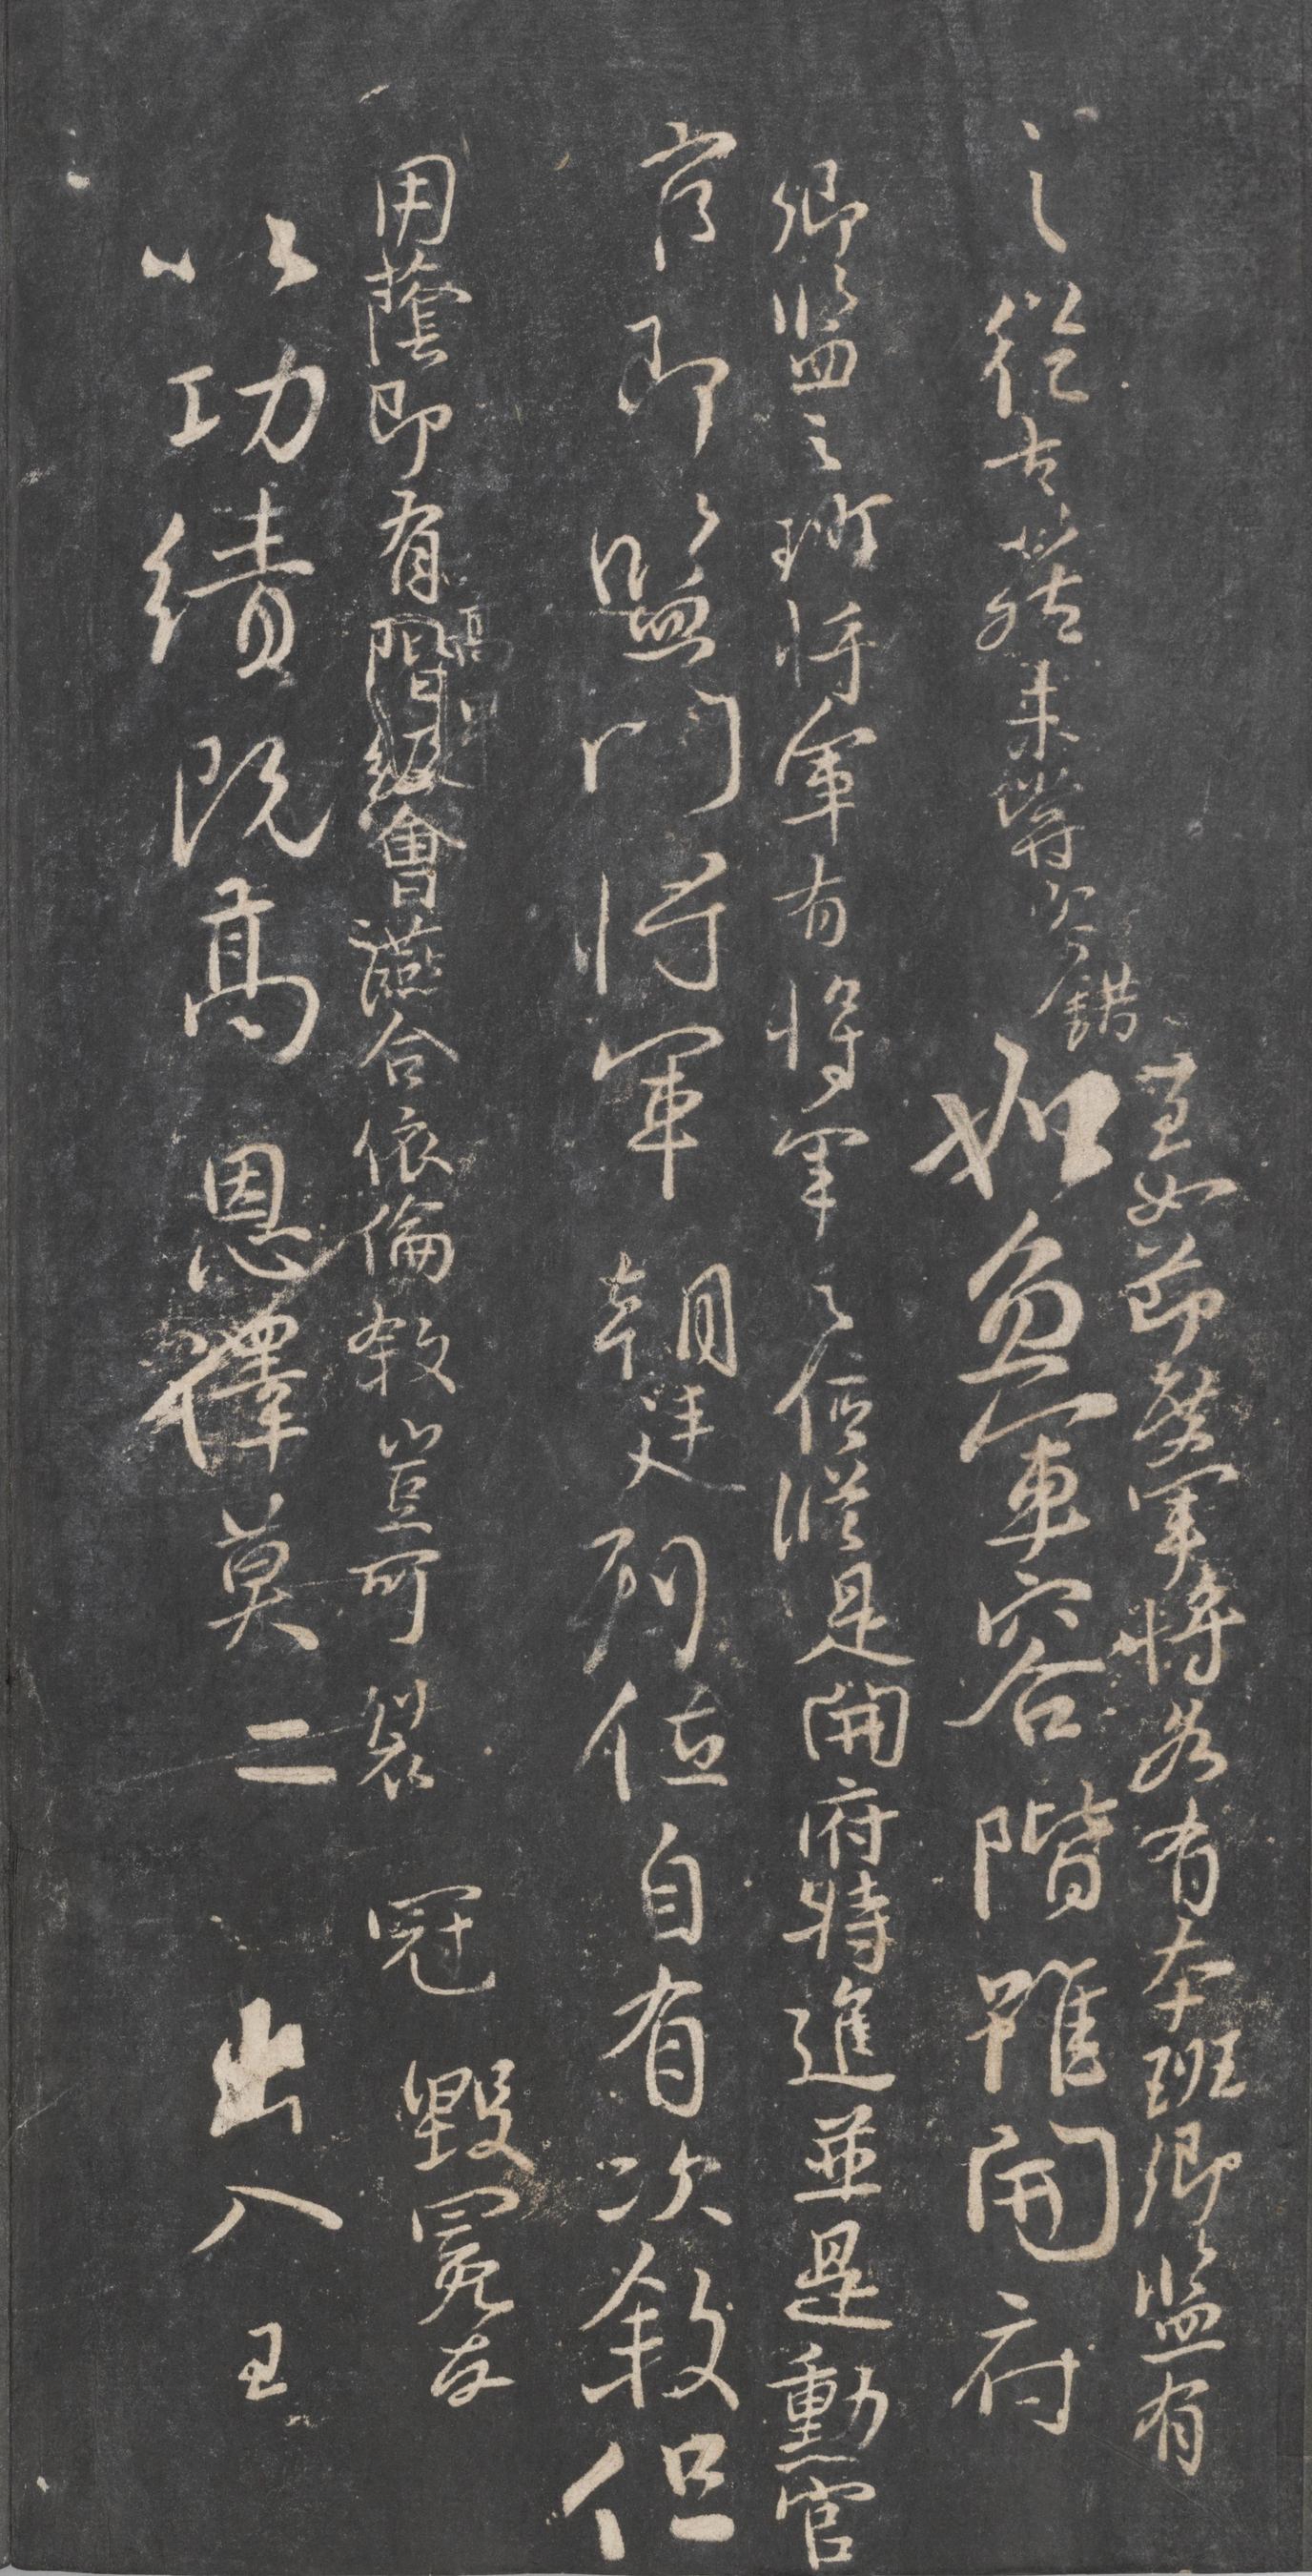 之從古以然未嘗參錯
至如節度軍將各有本班卿監有
卿監之班將軍有將軍之位縱是開府特進並是勳官
用蔭即有階級高卑會讌合依倫敘豈可裂冠毀冕反
如魚軍容階雖開府
官即監門將軍朝廷列位自有次敘但
以功績既高恩澤莫二出入王